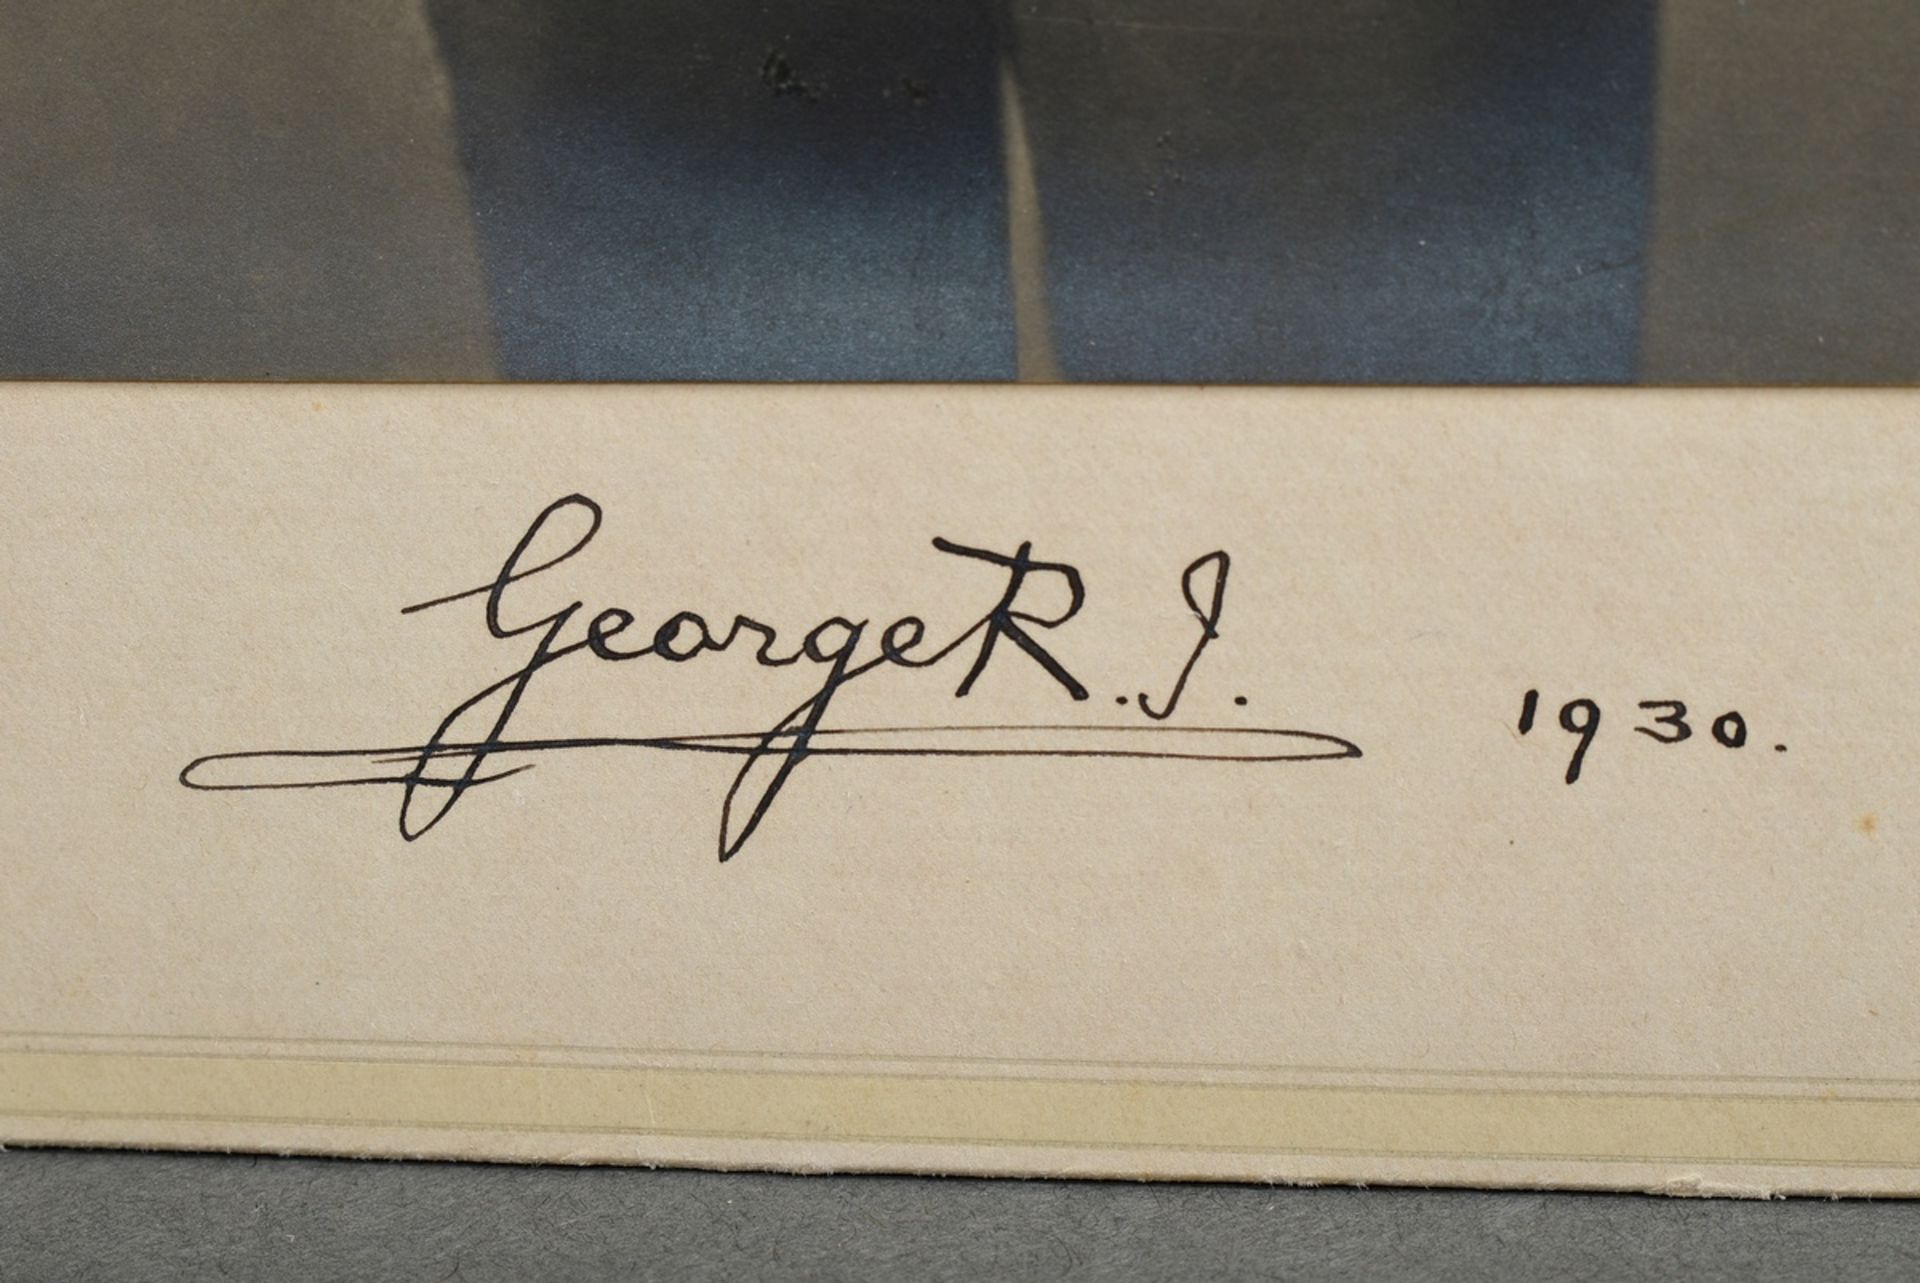 George R.I. 1930.